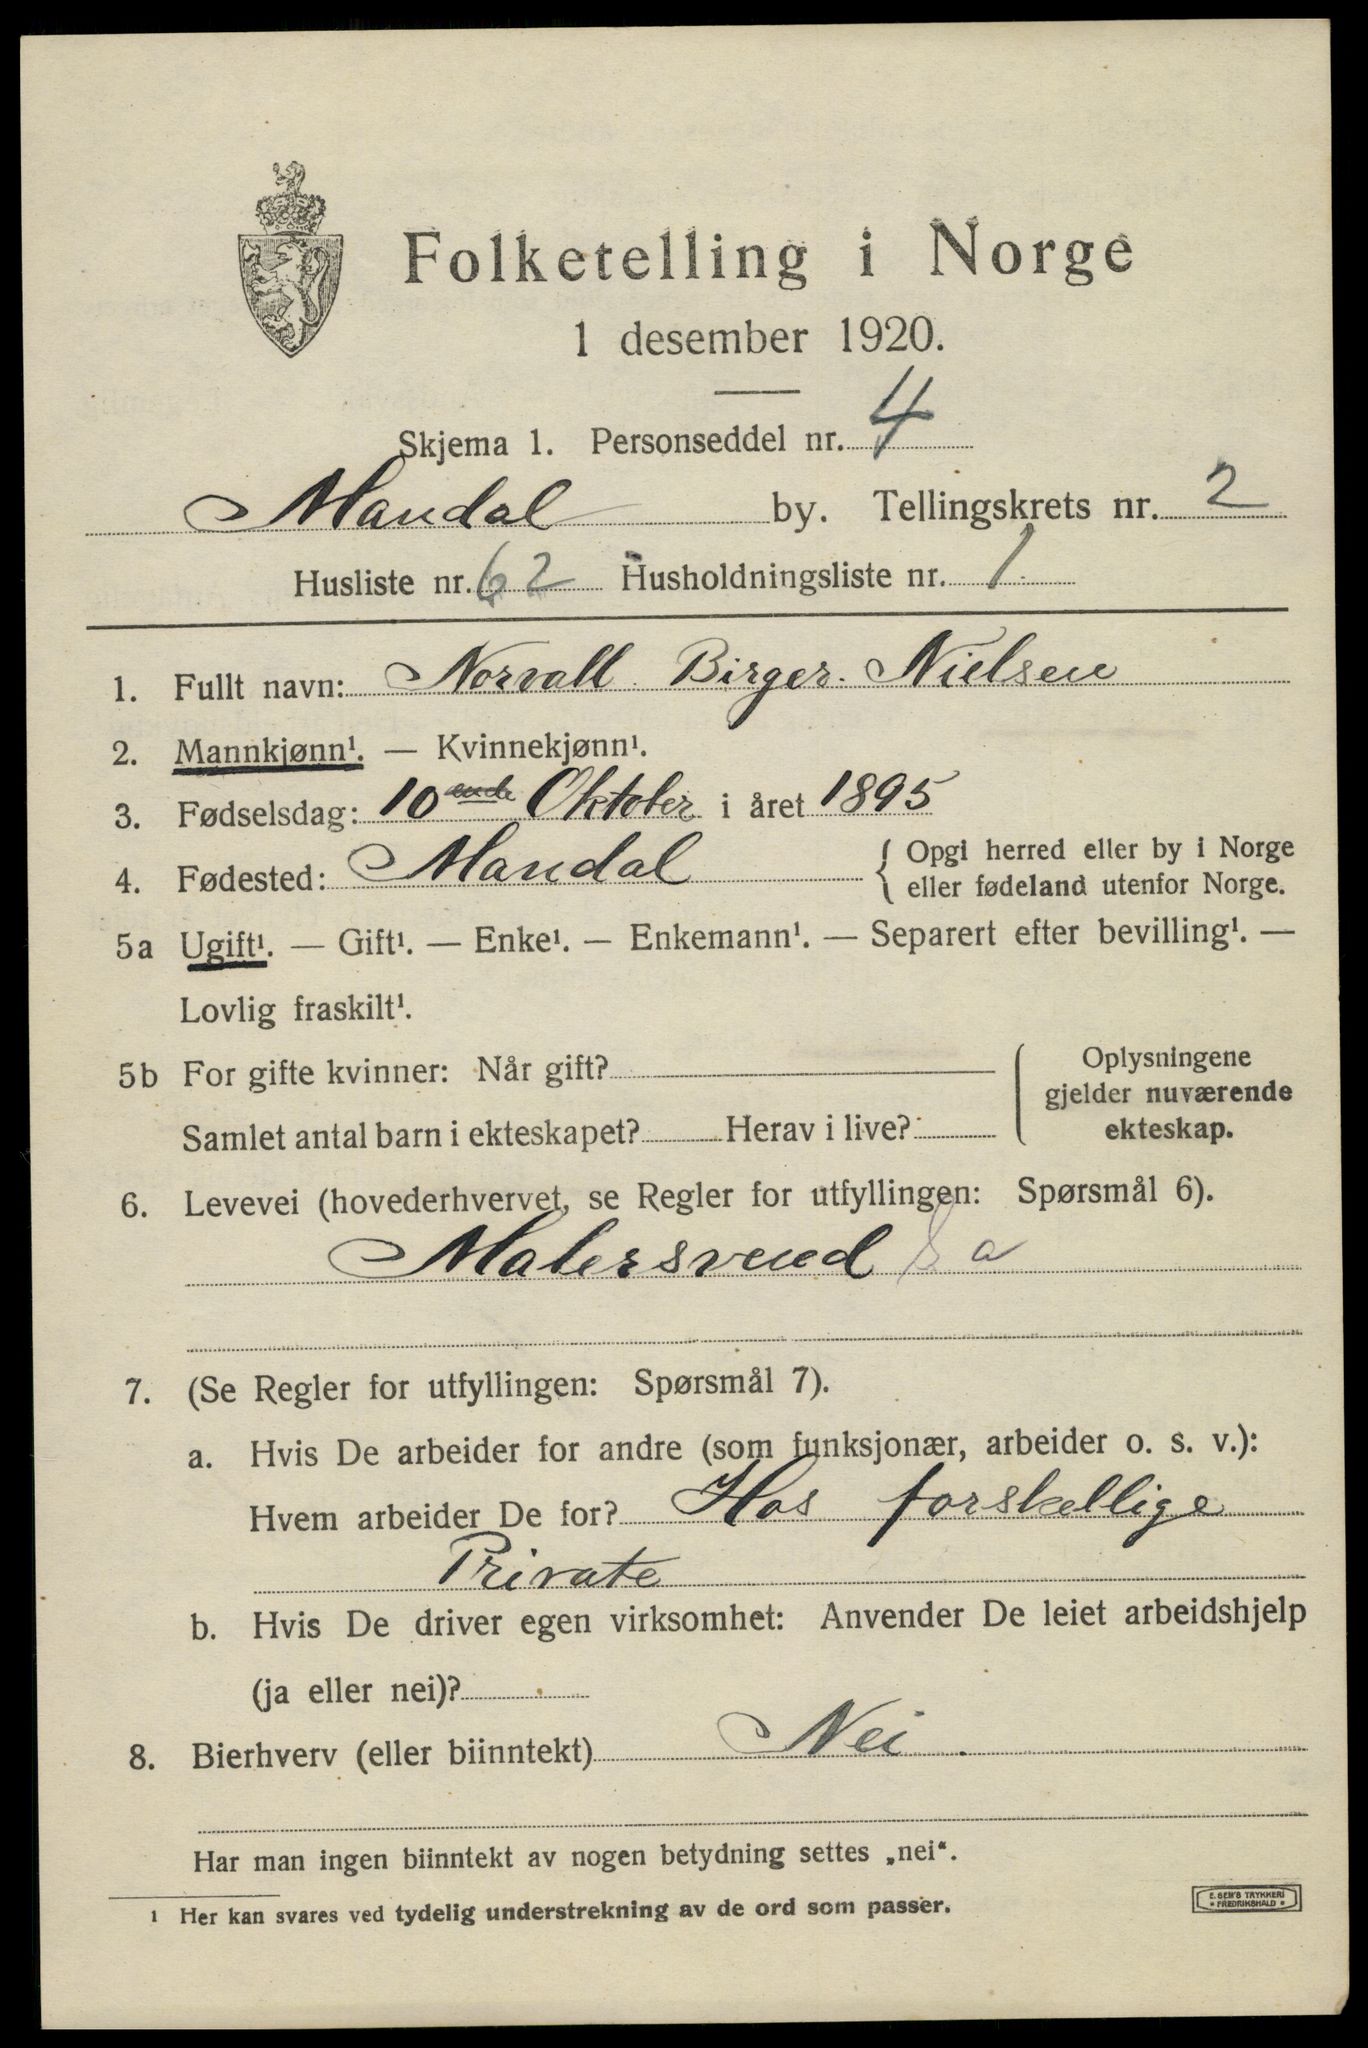 Folketelling i Norge
1 desember 1920.
Skjema 1. Personseddel nr. 4
Mandal by. Tellingskrets nr. 2
Husliste nr. 62 Husholdningsliste nr. 1.
1. Fullt navn: Norvall Birger Nielsen
2. Mannkjønn¹. — Kvinnekjønn¹.
3. Fødselsdag: 10ende Oktober i året 1895
4. Fødested: Mandal { Opgi herred eller by i Norge
eller fødeland utenfor Norge.
5a Ugift¹. — Gift¹. — Enke¹. — Enkemann¹. — Separert efter bevilling¹. —
Lovlig fraskilt¹.
5b For gifte kvinner: Når gift?
Samlet antal barn i ekteskapet? Herav i live?
Oplysningene
gjelder nuværende
ekteskap.
6. Levevei (hovederhvervet, se Regler for utfyllingen: Spørsmål 6).
Malersvend a
7. (Se Regler for utfyllingen: Spørsmål 7).
a. Hvis De arbeider for andre (som funksjonær, arbeider o. s. v.):
Hvem arbeider De for? Hos forskellige
Private
b. Hvis De driver egen virksomhet: Anvender De leiet arbeidshjelp
(ja eller nei)?
8. Bierhverv (eller biinntekt) Nei.
Har man ingen biinntekt av nogen betydning settes „nei“.
1 Her kan svares ved tydelig understrekning av de ord som passer.
E. SEM'S TRYKKERI
* FREDRIKSHALD *